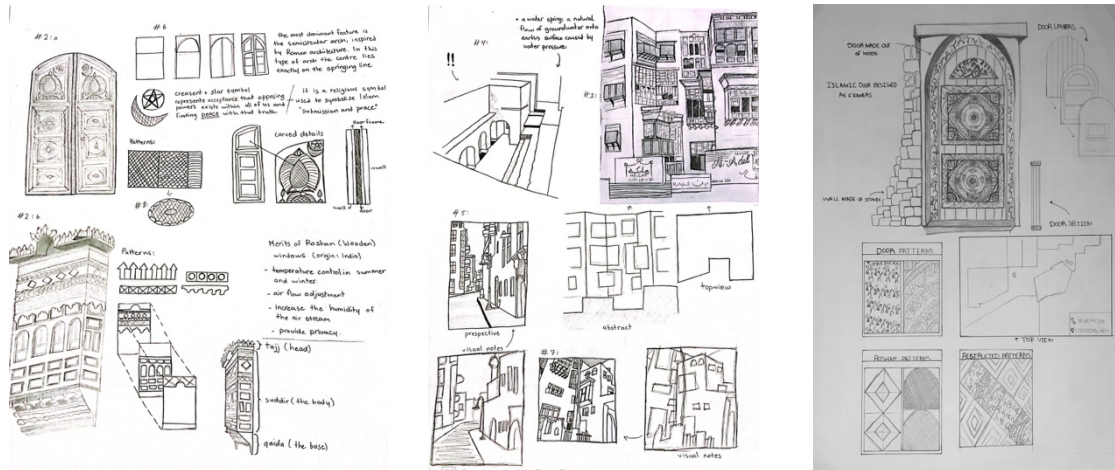 #2:a
#6
the most dominant feature is
the semicircular arch, inspired
by Roman architecture. In this
type of arch the centre lies
exactly on the springing line.
creasent + star symbol
represents acceptance that opposing
powers exists within all of us and
finding peace with that truth.
it is a religious symbol
used to symbolize Islam
"submission and peace"
Patterns:
#8:
carved details
door frame
wall
wall
door
#2:b
Patterns:
Merits of Roshan (Wooden)
windows (origin: India)
- temperature control in summer
and winter.
- air flow adjustment
- increase the humidity of
the air stream
- provide privacy.
tajj (head)
suddir (the body)
qaida (the base)
#4:
!!
+ a water spring: a natural
flow of groundwater onto
earths surface caused by
water pressure
#3:
#5:
prespective
visual notes
abstract
topview
#7:
visual notes
DOOR MADE OUT
OF WOODS
ISLAMIC DOOR DESIGNED
AS FLOWERS
WALL MADE OF STONES
DOOR LAYERS
DOOR SECTION
DOOR PATTERNS
TOP VIEW
ROSHAN PATTERNS
ABSTRACTED PATTERNS